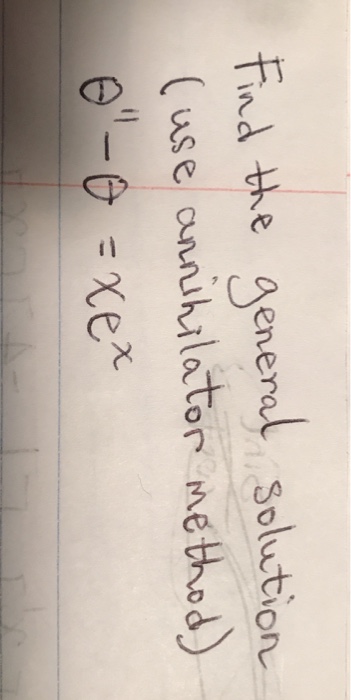 Find the general solution
(use annihilator method)
θ'' - θ = xeˣ